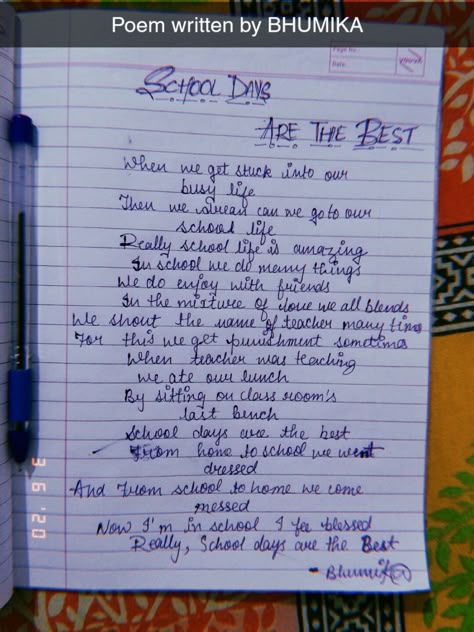 Poem written by BHUMIKA
Page No.
Date
SCHOOL DAYS
ARE THE BEST
When we get stuck into our
busy life
Then we dream can we go to our
school life
Really school life is amazing
In school we do meny things
We do enjoy with friends
In the mixture of love we all blends
We shout the name of teacher many time
For this we get punishment sometimes
When teacher was teaching
we ate our lunch
By sitting on class room's
last bench
School days are the best
From home to school we went
dressed
And From school to home we come
messed
Now I'm in school I fee blessed
Really, School days are the Best
- Bhumika
3 6 '20